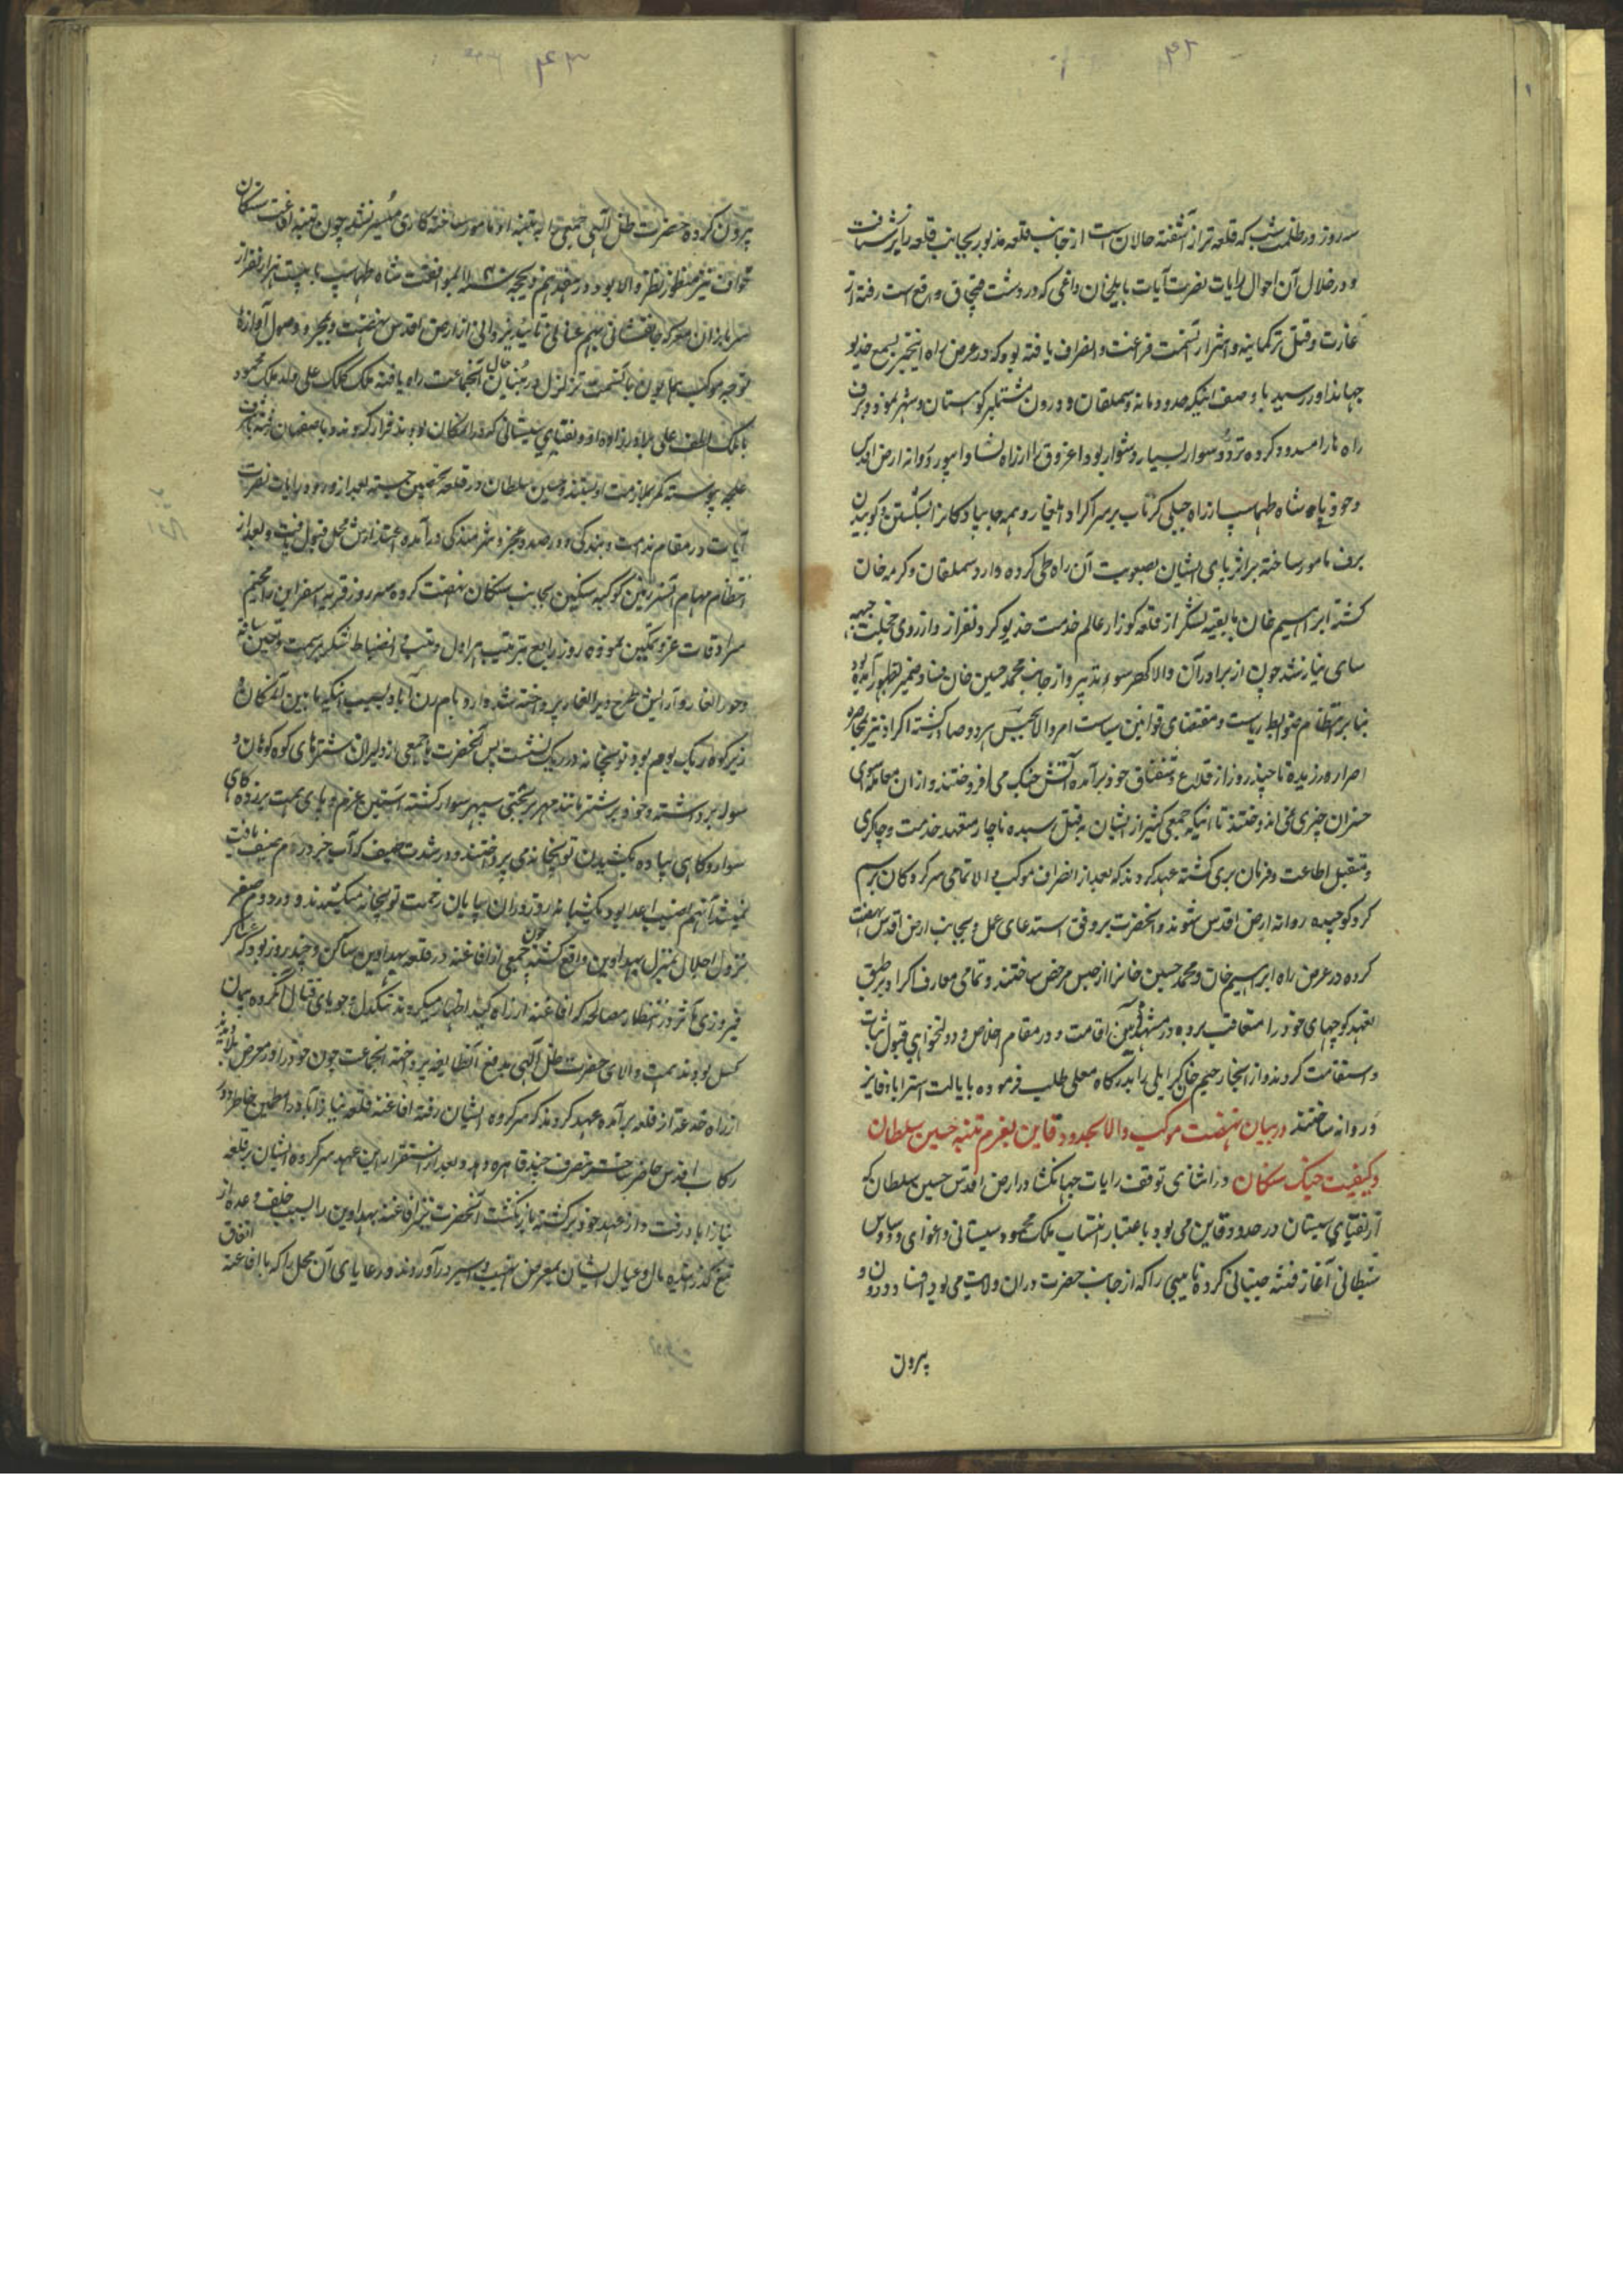 ۴۲
سه روز در ظلمت شب که قلعه تر از آشفته حالان است از جانب قلعه مذبور بجانب قلعه
و در خلال آن احوال رایات نصرت آیات بایلخان داغی که در دشت قبچاق واقع است رفته از
غارت و قتل ترکمانیه و اشرار آنسمت فراغت و انصراف یافته بود که در عرض راه اینخبر بسمع خدیو
جهاندار رسید با وصف اینکه حدود مانه و سملقان و درون مشتمل بر کوهستان و شهر نمو و برف
راه ها را مسدود کرده تردد سوار بسیار دشوار بود اغروق را از راه نشابور روانه ارض اقدس
و خود با شاه طهماسب از راه جبلی کرتاب بر سر اکراد ایلغار و همه جا پیادکانرا بشکستن و کوبیدن
برف مامور ساخته بر اثر پای ایشان بصعوبت آن راه طی کرده وارد سملقان و کرمه خان
کشته ابراهیم خان با بقیه لشکر از قلعه کوزار عالم خدمت خدیو کردنفراز و از روی خجلت جبهه
سای نیاز شد چون از برادر آن والا کهر سوء تدبیر و از جانب محمد حسین خان فساد ضمیر بظهور آمده بود
بنا بر انتظام ضوابط ریاست و مقتضای قوانین سیاست امر والا بحبس هر دو صادر کشته اکراد نیز بمحاصره
اصرار ورزیده تا چند روز از قلاع و سقناق خود برآمده آتش جنک می افروختند و از آن معامله سوای
خسران چیزی نمی اندوختند تا اینکه جمعی کثیر از ایشان بقتل رسیده ناچار متعهد خدمت و چاکری
و متقبل اطاعت و فرمان بری کشته عهد کردند که بعد از انصراف موکب والا تمامی سرکردکان برسم
کرو کوچیده روانه ارض اقدس شوند و آنحضرت بر وفق استدعای عمل و بجانب ارض اقدس نهضت
کرده در عرض راه ابراهیم خان و محمد حسین خانرا از حبس مرخص ساختند و تمامی معارف اکراد بر طبق
تعهد کوچهای خود را متعاقب برده در مشهد اقامت و در مقام اخلاص و دولتخواهی قبول ثبات
و استقامت کردند و از آنجا رحیم خان کرایلی را بدرکاه معلی طلب فرموده بایالت استراباد فایز
و روانه ساختند در بیان نهضت موکب والا بحدود قاین بعزم تنبیه حسین سلطان
و کیفیت جنک سنکان در اثنای توقف رایات جهانکشا در ارض اقدس حسین سلطان که
از نقبای سیستان در حدود قاین می بود باعتبار انتساب ملک محمود سیستانی و اغوای وسواس
شیطانی آغاز فتنه جنبانی کرده نایبی را که از جانب حضرت در آن ولایت می بود
بیرون
۴۳
بیرون کرده حضرت ظل الهی جمعی را به تنبیه او مامور ساخته کاری میسر نشد چون تنبیه افاغنه سنکان
خواف نیز منظور نظر والا بود در هفدهم ذیحجه بموافقت شاه طهماسب با بیست هزار نفر از
سربازان معرکه جانفشانی بهم عنانی تائید یزدانی از ارض اقدس نهضت و بمجرد وصول آوازه
توجه موکب همایون بآنسمت تزلزل در بنیان حال آنجماعت راه یافته ملک کلب علی ولد ملک محمود
با ملک لطف علی برادرزاده او و نقبای سیستانی که در آن مکان بودند فرار کردند و باصفهان رفته باشرف
غلیجه پیوسته کمر بملازمت او بستند و حسین سلطان در قلعه تحصن جسته بعد از ورود رایات نصرت
آیات در مقام ندامت و بندکی و در صدد عجز و شرمندکی درآمده اعتذارش محل قبول یافت و بعد از
انتظام مهام آنسرزمین کوکبه سنکین بجانب سنکان نهضت کرده سه روز قریه اسفدین را مخیم
سرادقات عز و تمکین نموده روز رابع بترتیب هراول و تیپ و انضباط لشکر
و جرانغار و آرایش طرح و برانغار پرداخته شد
زیر کوه ریک بوم بود توپخانه در ریک نشست پس آنحضرت با جمعی از دلیران شترهای کوه کوهان
سواره برداشته و خود بر شتر مانند مهر سپهر سوار کشته آستین عزم و پای همت برزده کاهی
سواره و کاهی پیاده بکشیدن توپخانه می پرداختند و در شدت صیف که آب جز در دم سیف یافت
نمیشد آنهم نصیب اعدا بود یکشبانه روز در آن بیابان زحمت توپخانه میکشیدند و در دویم صفر
نزول اجلال بمنزل بهدادین واقع کشته چون جمعی از افاغنه در قلعه بهدادین ساکن و چند روز بود که عساکر
فیروزی ماثر در انتظار مصالحه که افاغنه از راه کید اظهار میکردند تنکدل و جویای قتال آنکروه پیمان
کسل بودند همت والای حضرت ظل الهی بدفع آنطایفه پرداخته آنجماعت چون خود را در معرض بلا دیدند
از راه خدعه از قلعه برآمده عهد کردند که سرکرده ایشان رفته افاغنه قلعه نیازآباد را مطمئن خاطر و در
رکاب اقدس حاضر ساخته بتصرف جنود قاهره دهد و بعد از استقرار این عهد سرکرده ایشان بقلعه
نیازآباد رفت و از عهد خود برکشته بازنکشت آنحضرت نیز افاغنه بهدادین را بسبب خلف وعده از
تیغ کذرانیده مال و عیال ایشان بمعرض نهب و اسیر درآوردند و رعایای آن محل را که با افاغنه اتفاق